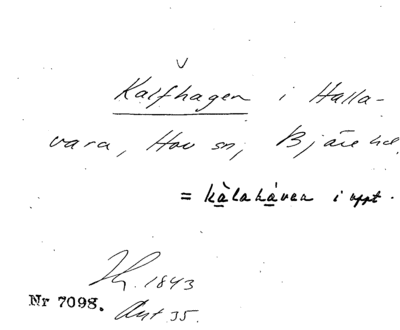 Kalfhagen i Halla-
vara, Hov sn, Bjäre hd.
= kàlaháven i uppt.
1843
Nr 7098. Ant 35.